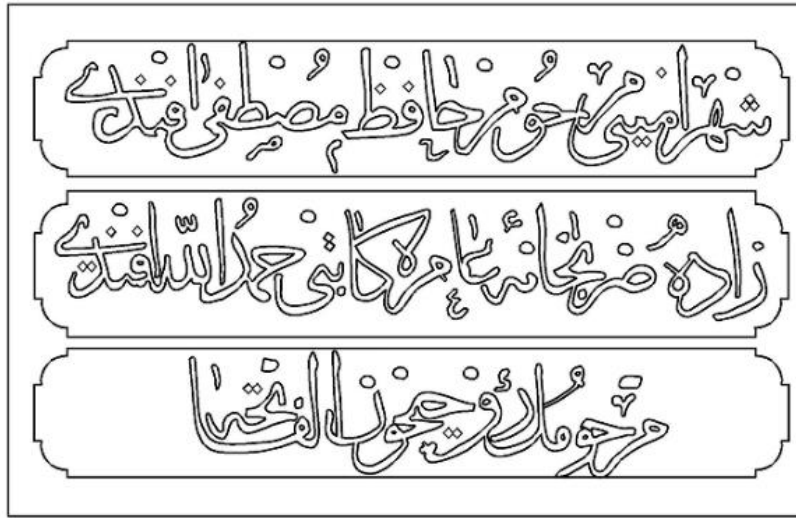 شهر امینی مرحوم حافظ مصطفی افندی
زاده ضربخانه عامره کاتبی حمد الله افندی
مرحومك روحیچون الفاتحه